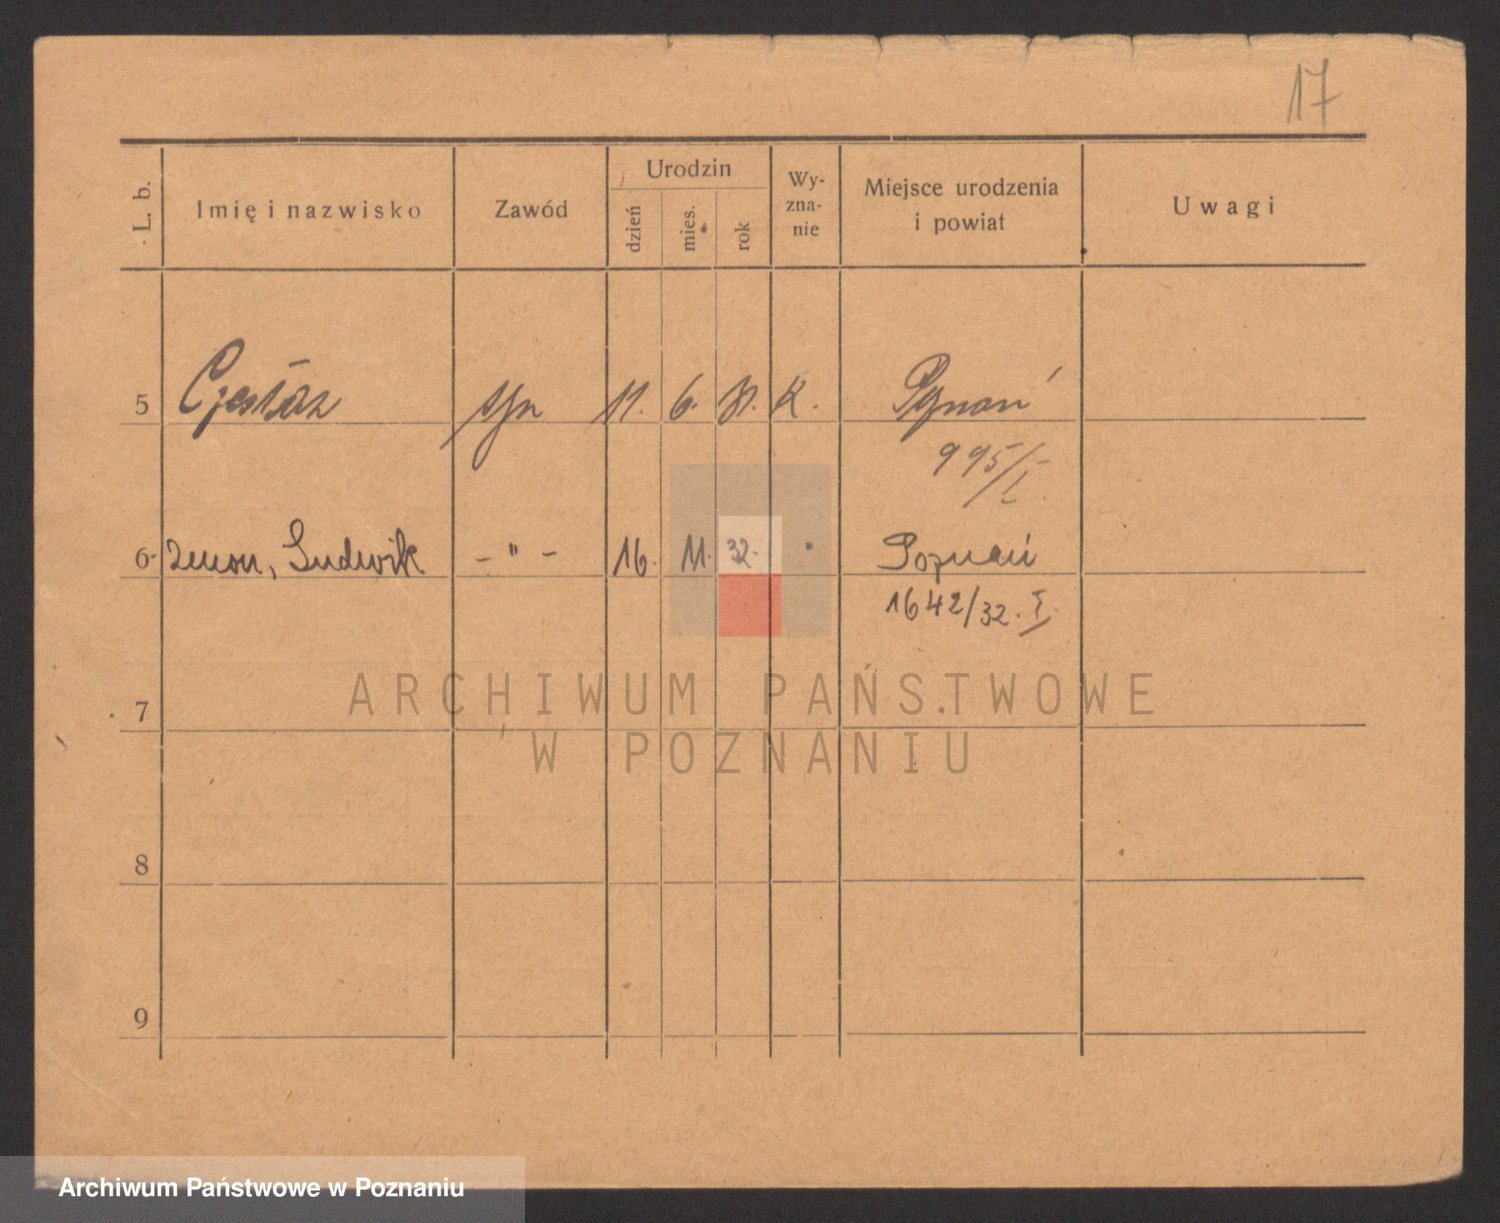 17
L. b. Imię i nazwisko Zawód Urodzin dzień mies. rok Wy-zna-nie Miejsce urodzenia i powiat Uwagi
5 syn 11. 6. K. Poznań
995/I
6. Zenon, Ludwik - " - 16. 11. 32. " Poznań
1642/32. I.
7
8
9
ARCHIWUM PAŃSTWOWE
W POZNANIU
Archiwum Państwowe w Poznaniu